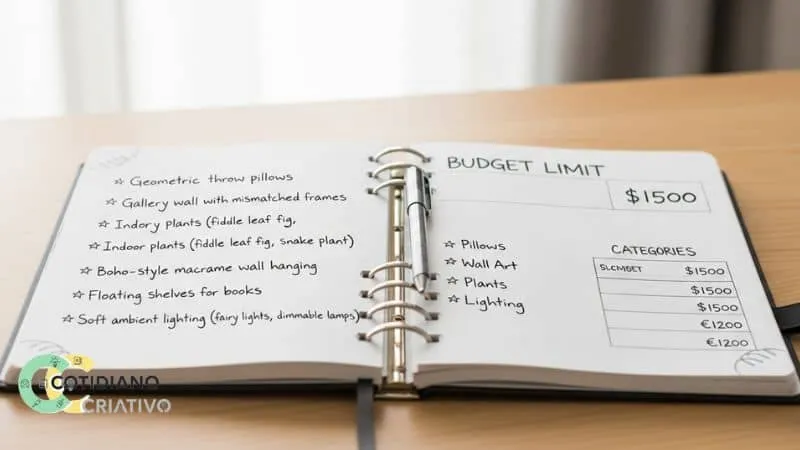 ☆ Geometric throw pillows
☆ Gallery wall with mismatched frames
☆ Indory plants (fiddle leaf fig,
☆ Indoor plants (fiddle leaf fig, snake plant)
☆ Boho-style macrame wall hanging
☆ Floating shelves for books
☆ Soft ambient lighting (fairy lights, dimmable lamps)
BUDGET LIMIT
$1500
☆ Pillows
☆ Wall Art
☆ Plants
☆ Lighting
CATEGORIES
$1500
$1500
$1500
€1200
€1200
COTIDIANO
CRIATIVO